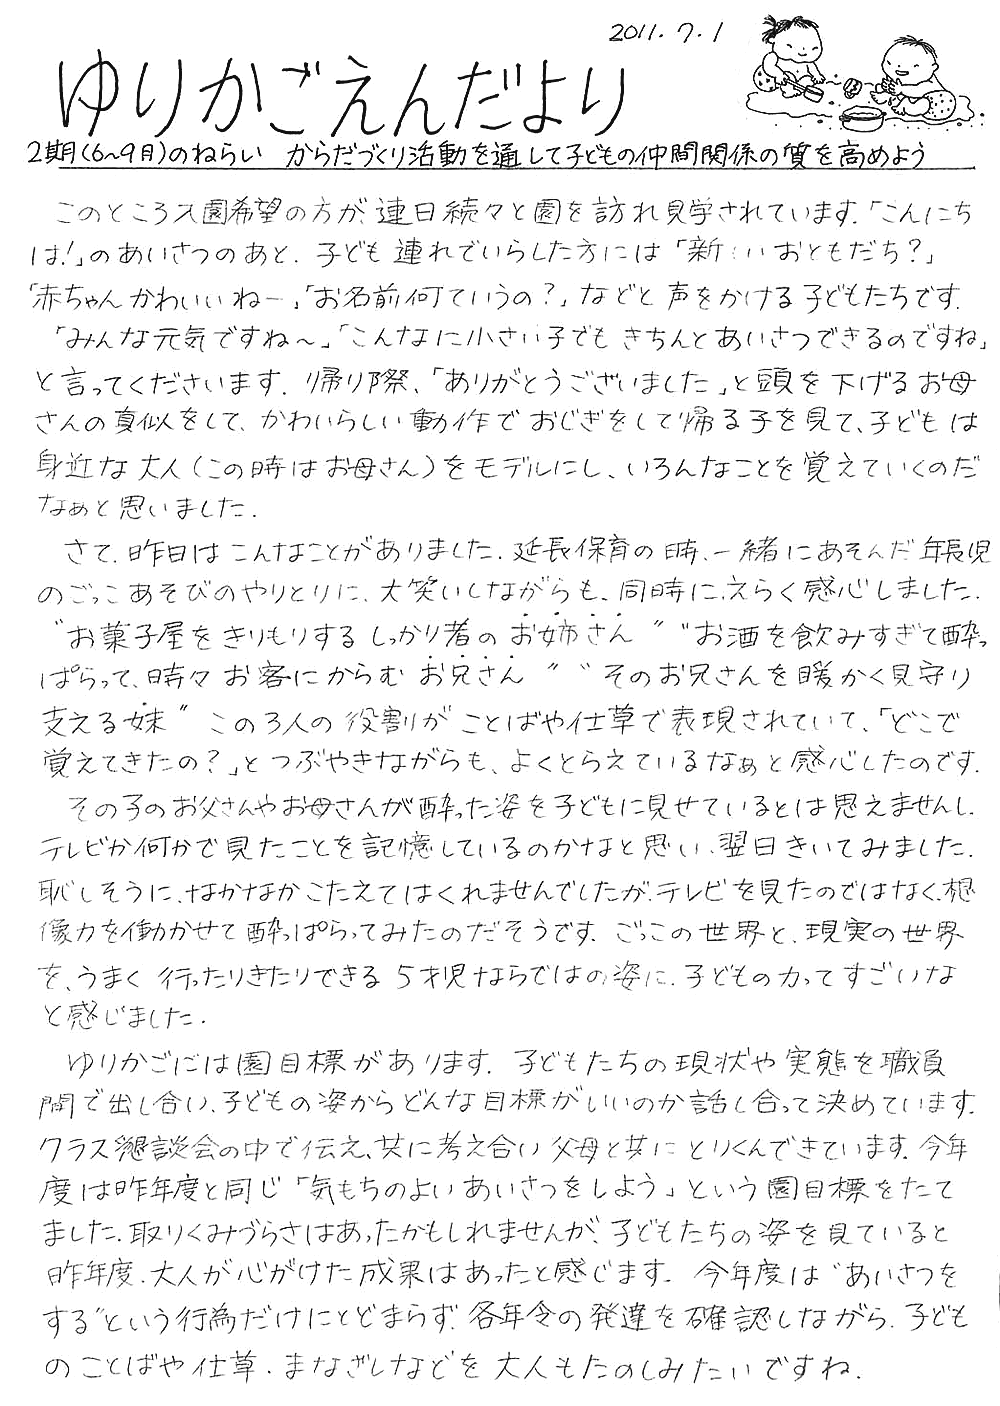 2011.7.1
ゆりかごえんだより
2期(6~9月)のねらい からだづくり活動を通して子どもの仲間関係の質を高めよう
このところ入園希望の方が、連日続々と園を訪れ見学されています。「こんにち
は!」のあいさつのあと、子ども連れでいらした方には「新しいおともだち?」
「赤ちゃんかわいいねー」「お名前何ていうの?」などと声をかける子どもたちです。
「みんな元気ですね~」「こんなに小さい子でもきちんとあいさつできるのですね」
と言ってくださいます。帰り際、「ありがとうございました」と頭を下げるお母
さんの真似をして、かわいらしい動作でおじぎをして帰る子を見て、子どもは
身近な大人(この時はお母さん)をモデルにし、いろんなことを覚えていくのだ
なぁと思いました。
さて、昨日はこんなことがありました。延長保育の時、一緒にあそんだ年長児
のごっこあそびのやりとりに、大笑いしながらも、同時にえらく感心しました。
“お菓子屋をきりもりするしっかり者のお姉さん”“お酒を飲みすぎて酔っ
ぱらって、時々お客にからむお兄さん”“そのお兄さんを暖かく見守り
支える妹”この3人の役割がことばや仕草で表現されていて、「どこで
覚えてきたの?」とつぶやきながらも、よくとらえているなぁと感心したのです。
その子のお父さんやお母さんが酔った姿を子どもに見せているとは思えませんし、
テレビか何かで見たことを記憶しているのかなと思い、翌日きいてみました。
恥しそうに、なかなかこたえてはくれませんでしたが、テレビを見たのではなく、想
像力を働かせて酔っぱらってみたのだそうです。ごっこの世界と、現実の世界
を、うまく行ったりきたりできる5才児ならではの姿に、子どもの力ってすごいな
と感じました。
ゆりかごには園目標があります。子どもたちの現状や実態を職員
間で出し合い、子どもの姿からどんな目標がいいのか話し合って決めています。
クラス懇談会の中で伝え、共に考え合い父母と共にとりくんできています。今年
度は昨年度と同じ「気もちのよいあいさつをしよう」という園目標をたて
ました。取りくみづらさはあったかもしれませんが、子どもたちの姿を見ていると
昨年度、大人が心がけた成果はあったと感じます。今年度は“あいさつを
する”という行為だけにとどまらず、各年令の発達を確認しながら、子ども
のことばや仕草、まなざしなどを大人もたのしみたいですね。